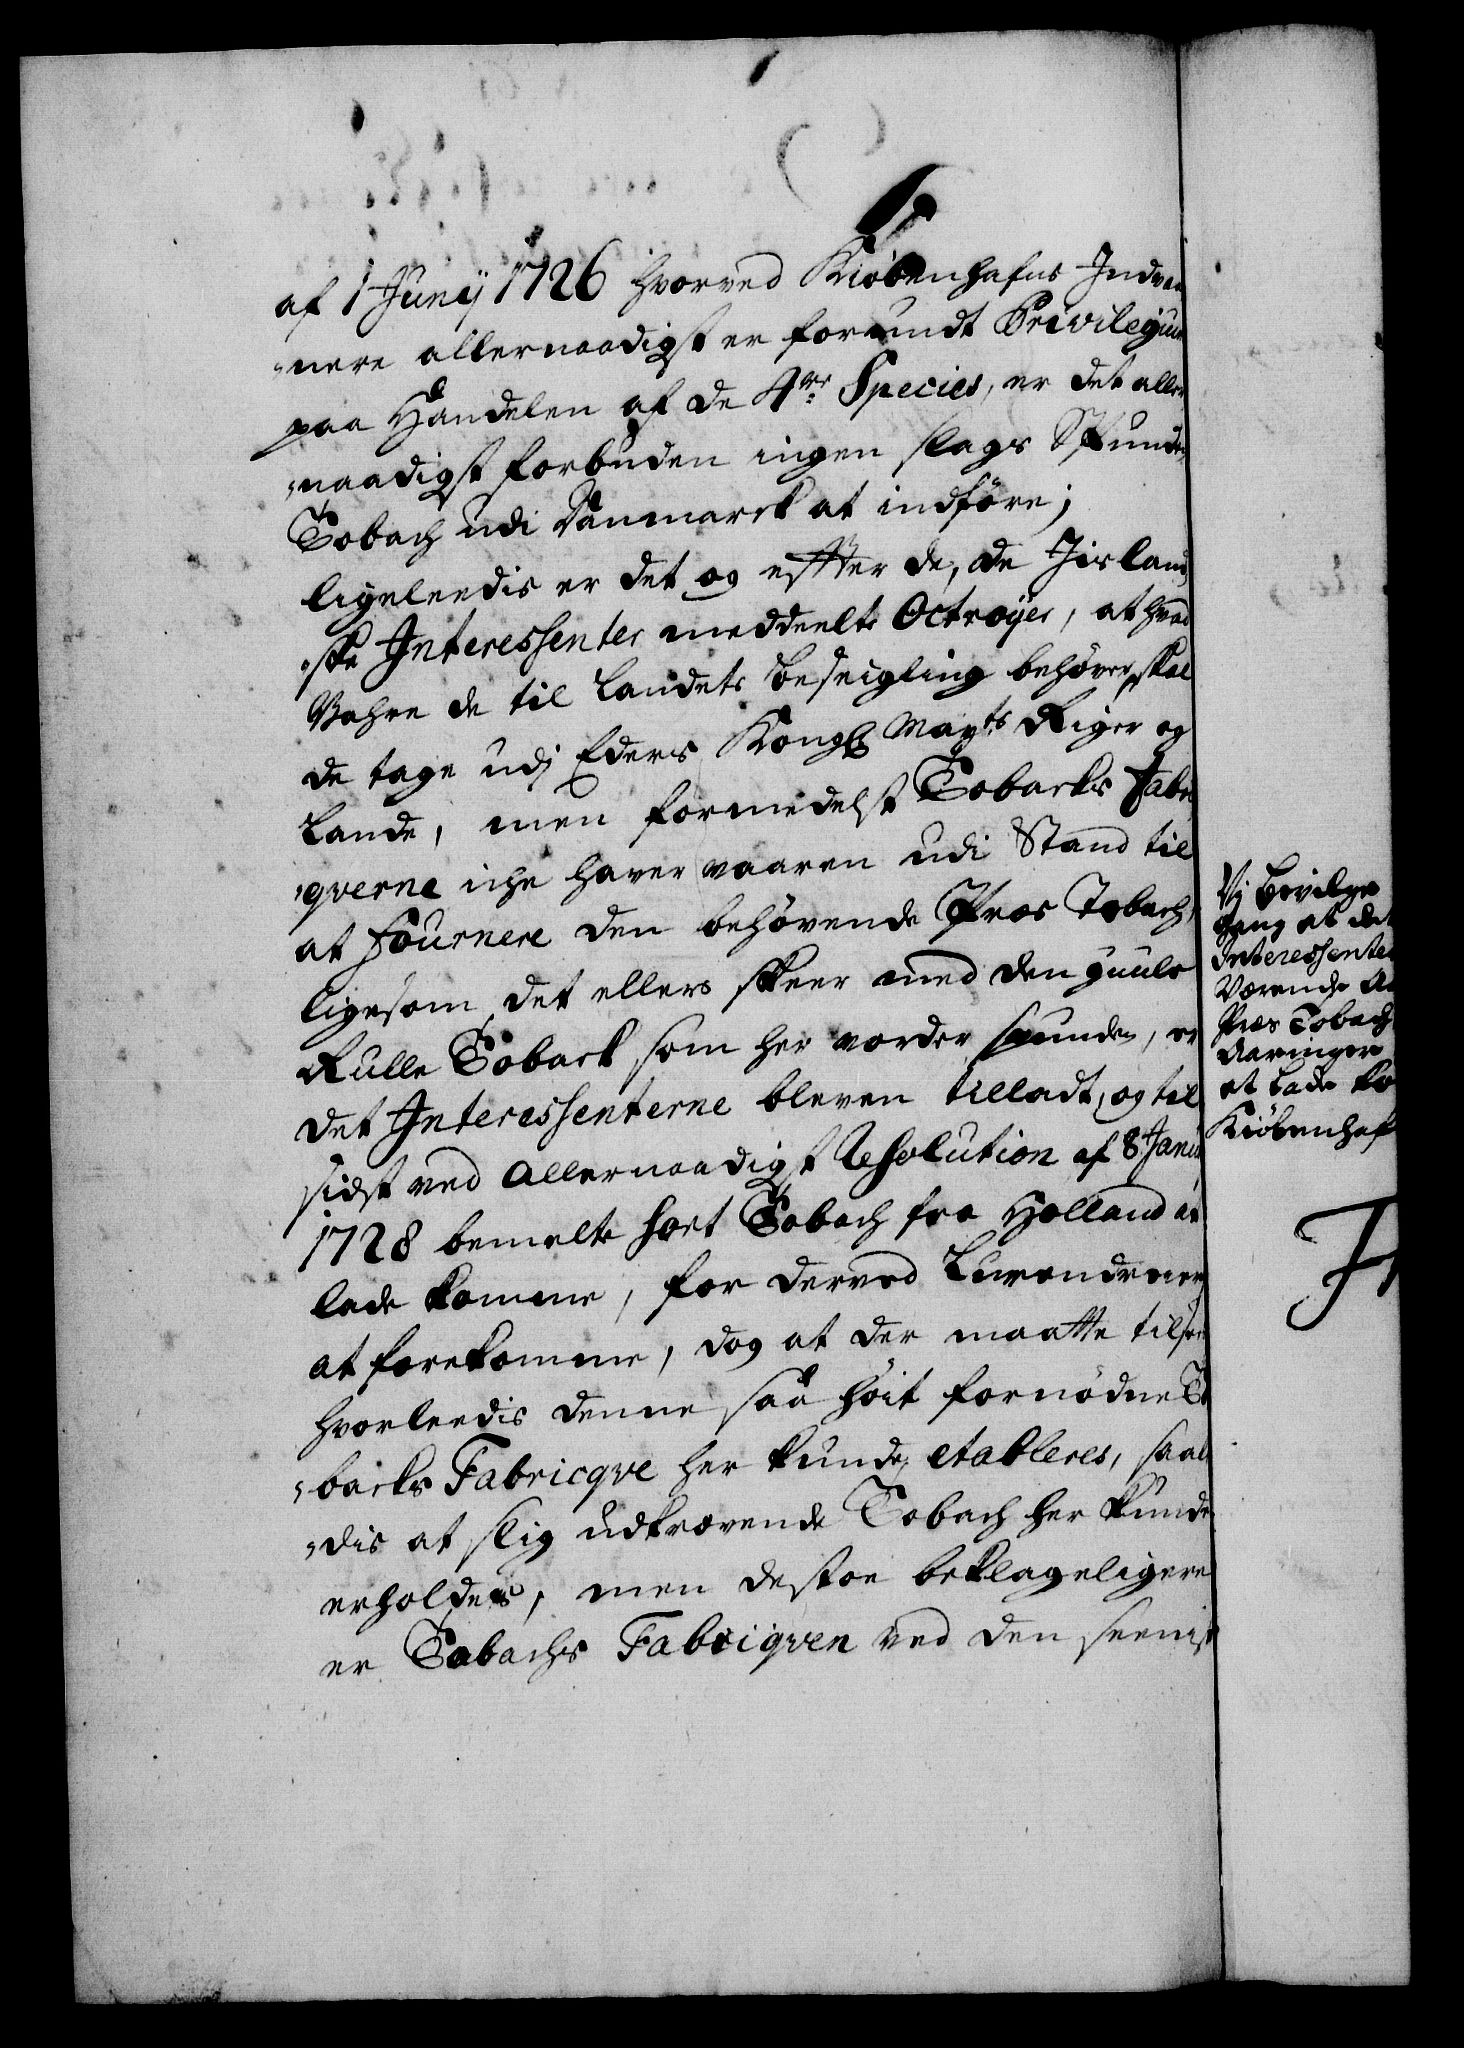 af 1 Junij 1726 hvorved Kiöbenhafns Indvaa
„nere allernaadigst er forundt Privilegium
paa Handelen af de 4re Species, er det aller
„naadigst forbuden ingen slags Spunden
Toback udi Danmarck at indföre;
ligeleedis er det og effter de, de Jisland
„ske Interessenter meddeelte Octroyer, at hvad
Vahre de til Landets Beseigling behöver, skal
de tage udj Eders Kongl Mayts Riger og
Lande, men formedelst Tobacks Fabri
„qverne icke haver vaaren udi Stand til
at fournere den behövende Præs Toback,
ligesom det ellers skeer med den guule
Rulle Toback som her vorder spunden, er
det Interessenterne bleven tilladt, og til
sidst ved allernaadigst Resolution af 8 Janii
1728 bemelte sort Toback fra Holland at
lade komme, for derved Lurendreier
at forekomme, dog at der maatte tilsees
hvorleedis denne saa höit fornödne To
„backs Fabricqve her kunde etableres, saale
„dis at slig udkrævende Toback her kunde
erholdes, men destoe beklageligere
er Tobachs Fabriqven ved den seenist
Vj bevilge
gang at de
Interessente
Værende Aa
Præs Toback
Aaringer
at lade ko
Kiöbenhaf
F